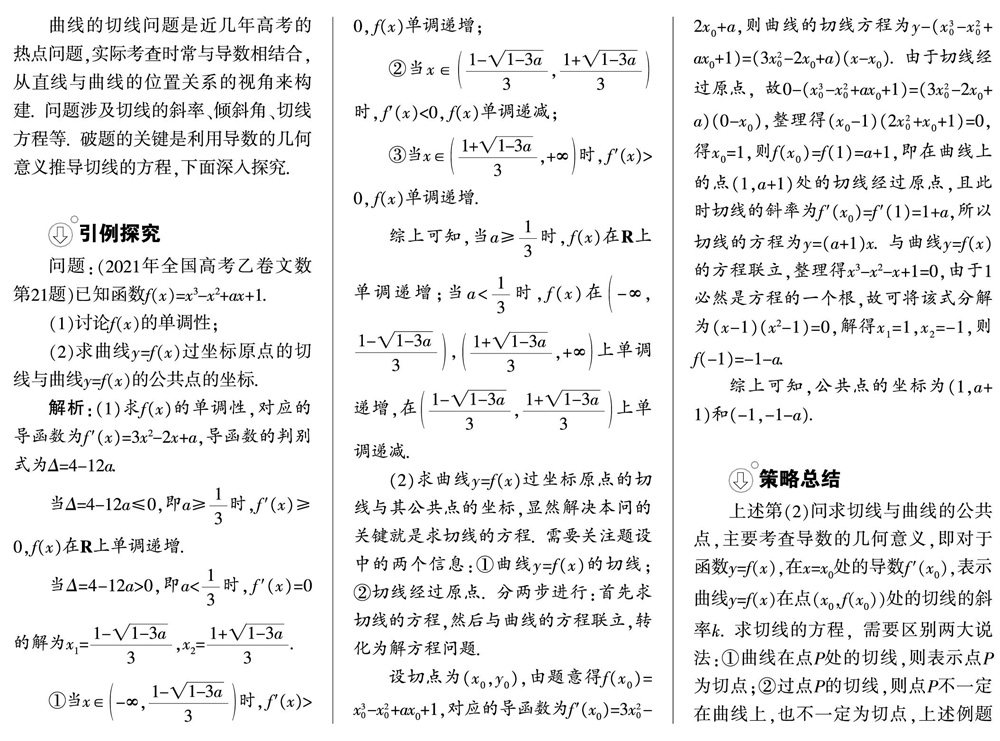 曲线的切线问题是近几年高考的
热点问题,实际考查时常与导数相结合,
从直线与曲线的位置关系的视角来构
建. 问题涉及切线的斜率、倾斜角、切线
方程等. 破题的关键是利用导数的几何
意义推导切线的方程,下面深入探究.
引例探究
问题:(2021年全国高考乙卷文数
第21题)已知函数f(x)=x³-x²+ax+1.
(1)讨论f(x)的单调性;
(2)求曲线y=f(x)过坐标原点的切
线与曲线y=f(x)的公共点的坐标.
解析:(1)求f(x)的单调性,对应的
导函数为f′(x)=3x²-2x+a,导函数的判别
式为Δ=4-12a.
当Δ=4-12a≤0,即a≥1/3时,f′(x)≥
0,f(x)在R上单调递增.
当Δ=4-12a>0,即a<1/3时,f′(x)=0
的解为x₁=(1-√(1-3a))/3,x₂=(1+√(1-3a))/3.
①当x∈(-∞,(1-√(1-3a))/3)时,f′(x)>
0,f(x)单调递增;
②当x∈((1-√(1-3a))/3,(1+√(1-3a))/3)
时,f′(x)<0,f(x)单调递减;
③当x∈((1+√(1-3a))/3,+∞)时,f′(x)>
0,f(x)单调递增.
综上可知,当a≥1/3时,f(x)在R上
单调递增;当a<1/3时,f(x)在(-∞,
(1-√(1-3a))/3),((1+√(1-3a))/3,+∞)上单调
递增,在((1-√(1-3a))/3,(1+√(1-3a))/3)上单
调递减.
(2)求曲线y=f(x)过坐标原点的切
线与其公共点的坐标,显然解决本问的
关键就是求切线的方程. 需要关注题设
中的两个信息:①曲线y=f(x)的切线;
②切线经过原点. 分两步进行:首先求
切线的方程,然后与曲线的方程联立,转
化为解方程问题.
设切点为(x₀,y₀),由题意得f(x₀)=
x₀³-x₀²+ax₀+1,对应的导函数为f′(x₀)=3x₀²-
2x₀+a,则曲线的切线方程为y-(x₀³-x₀²+
ax₀+1)=(3x₀²-2x₀+a)(x-x₀). 由于切线经
过原点, 故0-(x₀³-x₀²+ax₀+1)=(3x₀²-2x₀+
a)(0-x₀),整理得(x₀-1)(2x₀²+x₀+1)=0,
得x₀=1,则f(x₀)=f(1)=a+1,即在曲线上
的点(1,a+1)处的切线经过原点,且此
时切线的斜率为f′(x₀)=f′(1)=1+a,所以
切线的方程为y=(a+1)x. 与曲线y=f(x)
的方程联立,整理得x³-x²-x+1=0,由于1
必然是方程的一个根,故可将该式分解
为(x-1)(x²-1)=0,解得x₁=1,x₂=-1,则
f(-1)=-1-a.
综上可知,公共点的坐标为(1,a+
1)和(-1,-1-a).
策略总结
上述第(2)问求切线与曲线的公共
点,主要考查导数的几何意义,即对于
函数y=f(x),在x=x₀处的导数f′(x₀),表示
曲线y=f(x)在点(x₀,f(x₀))处的切线的斜
率k. 求切线的方程, 需要区别两大说
法:①曲线在点P处的切线,则表示点P
为切点;②过点P的切线,则点P不一定
在曲线上,也不一定为切点,上述例题